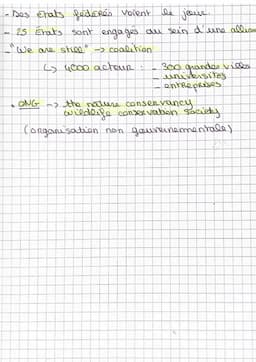 - Des Etats fédérés voient le jour.
- 25 Etats sont engagés au sein d'une allian
- "We are still" -> coalition
↳ 4000 acteur : - 300 grandes villes
- universités
- entreprises
• ONG -> the nature conservancy
wildlife conservation society
(organisation non gouvernementale)